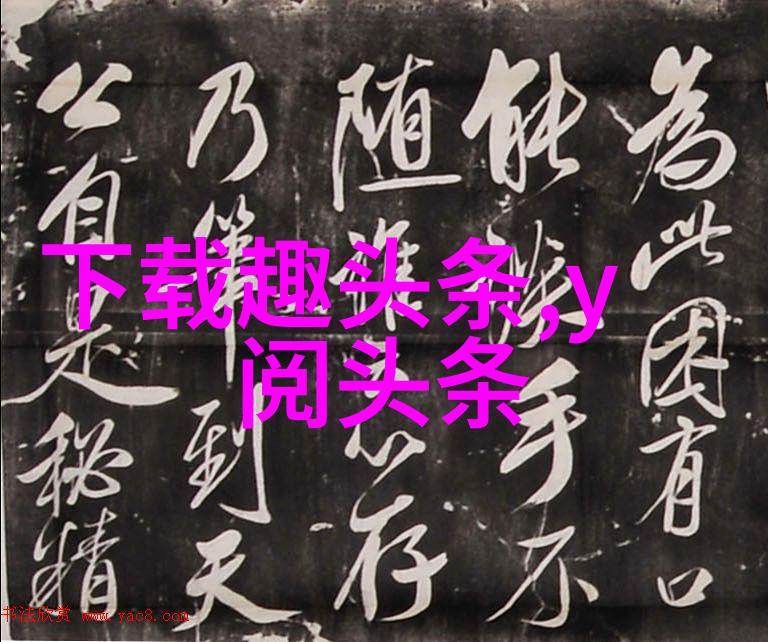 為此因有口
能手不
随存
乃筆到天
公自是秘精
下载趣头条,y
阅头条
书法欣赏 www.yac8.com